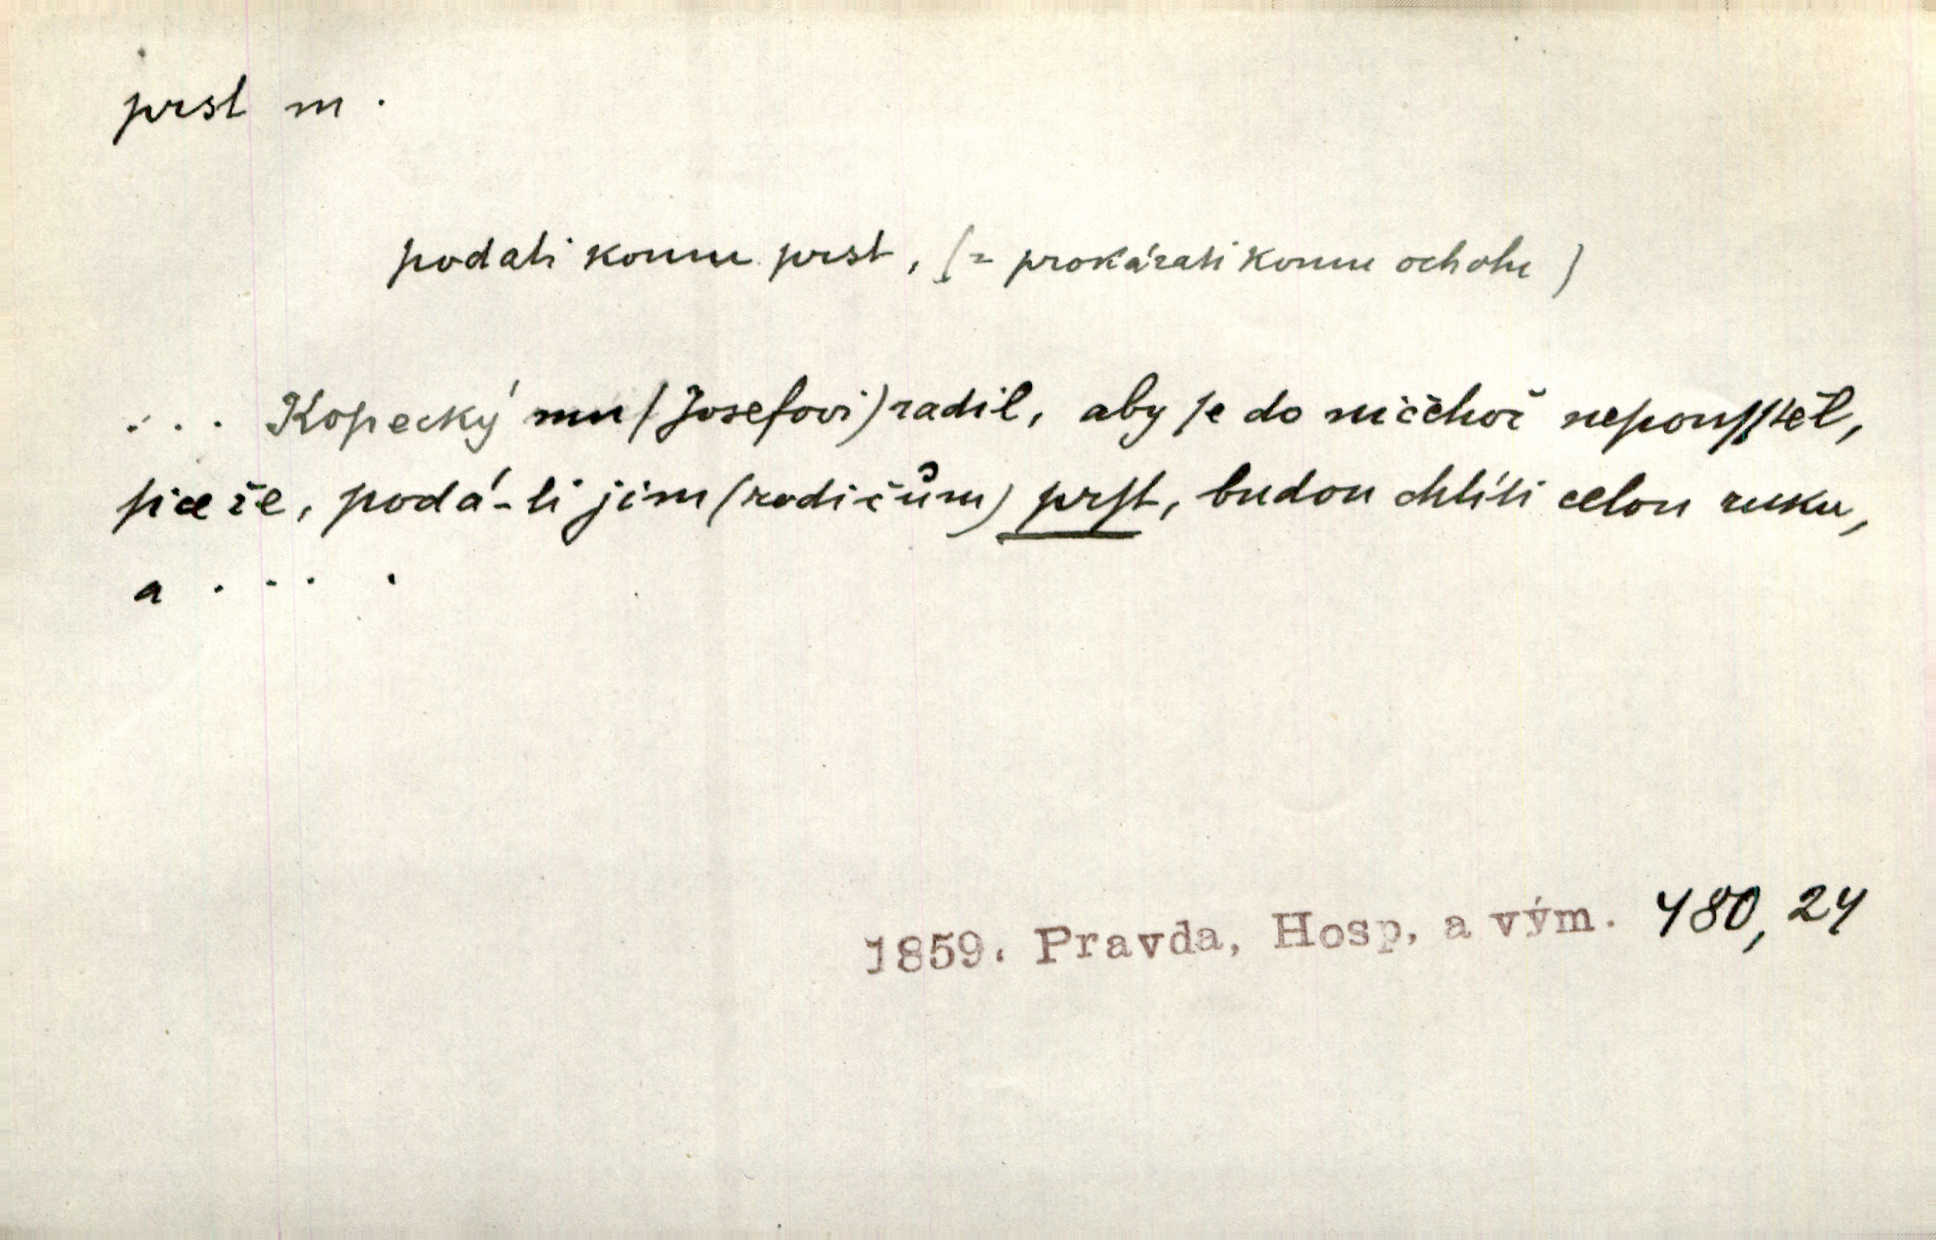 prst m.
podati komu prst, (= prokázati komu ochotu)
... Kopecký mu (Josefovi) radil, aby se do ničehož nepouſſtěl,
sice že, podá-li jim (rodičům) prſt, budou chtíti celou ruku,
a ....
1859. Pravda, Hosp, a vým. 480, 24